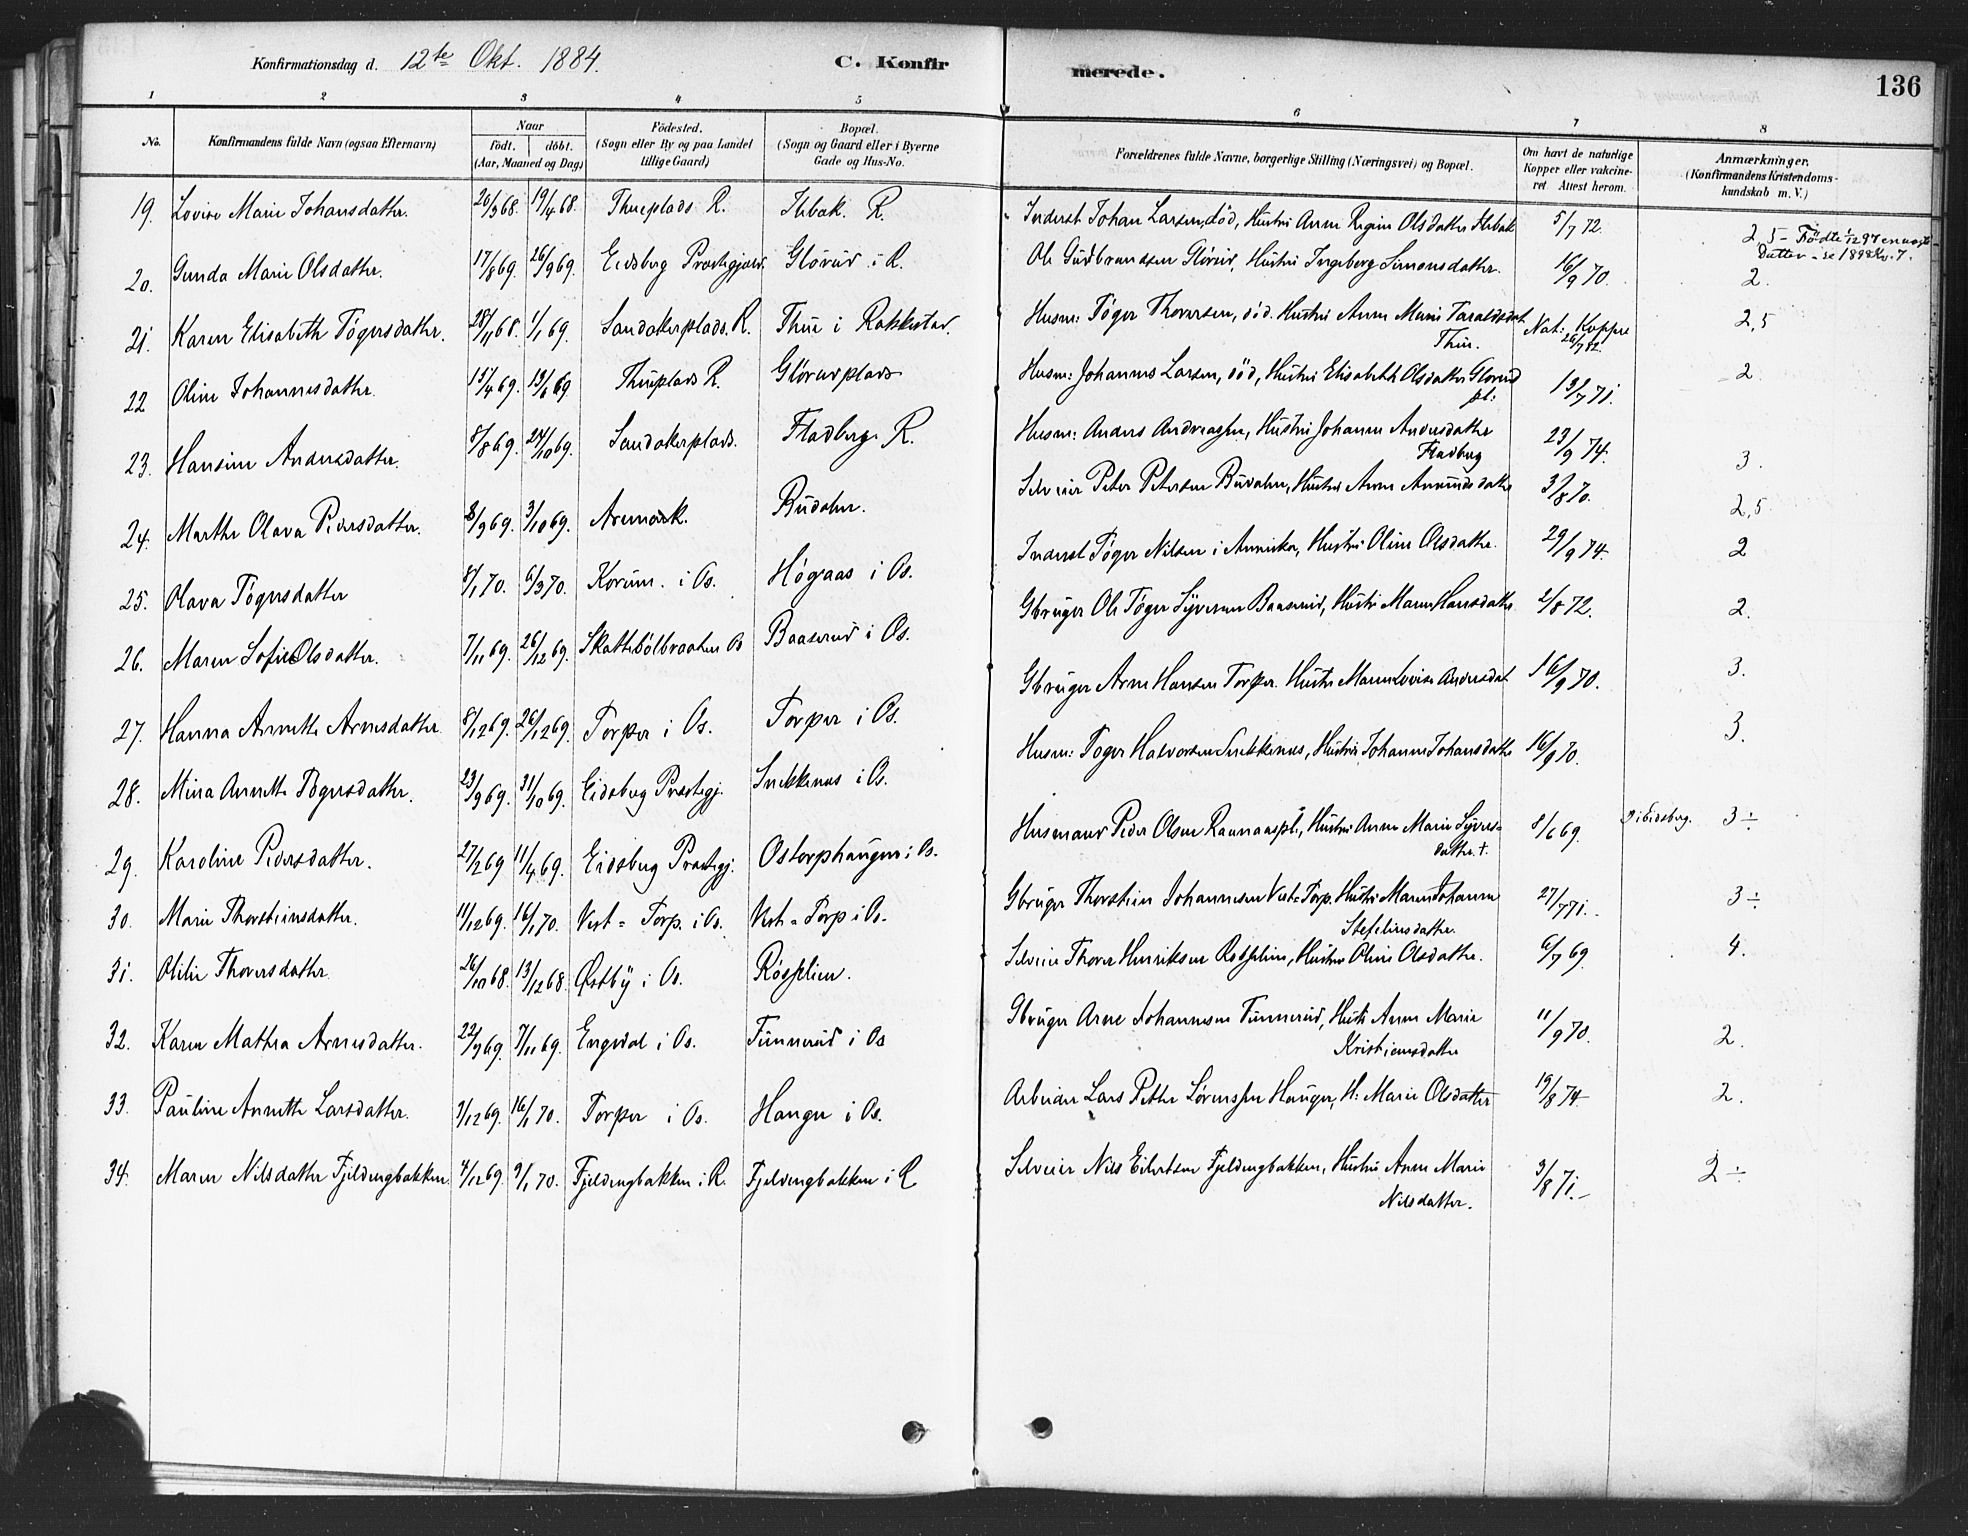 Konfirmationsdag d. 12te Okt. 1884. C. Konfirmerede. 136
1 2 3 4 5 6 7 8
No. Konfirmandens fulde Navn (ogsaa Efternavn) Naar födt. döbt. (Aar, Maaned og Dag) Födested. (Sogn eller By og paa Landet tillige Gaard) Bopæl. (Sogn og Gaard eller i Byerne Gade og Hus-No. Forældrenes fulde Navne, borgerlige Stilling (Næringsvei) og Bopæl. Om havt de naturlige Kopper eller vakcineret Attest herom. Anmærkninger. (Konfirmandens Kristendomskundskab m. V.)
19. Lovise Marie Johansdatter. 20/3 68. 19/4 68. Thueplads R. R. Inderst Johan Larsen, död, Hustru Anne Regine Olsdatter 5/7 72. 2,5 - Fødte 1/12 97 en uægte Datter - se 1898
20. Gunda Marie Olsdatter. 17/8 69. 26/9 69. Eidsberg Præstegjeld. Glörud i R. Ole Gudbrandsen Glörud, Hustru Ingeborg Simensdatter. 16/9 70. 2.
21. Karen Elisabeth Tögersdatter. 28/11 68. 1/1 69. Sandakerplads. R. Thue i Rakkestad. Husm: Töger Thoresen, död. Hustru Anne Marie Taraldsdat Thue. Nat: Kopper 26/7 82. 2,5
22 Oline Johannesdatter. 15/4 69. 13/6 69 Thueplads R. Glörudplads Husm: Johannes Larsen, död, Hustru Elisabeth Olsdatter Glorud pl: 13/7 71. 2
23. Hansine Andersdatter. 8/8 69. 24/10 69. Sandakerplads. Fladberg R. Husm: Anders Andreassen, Hustru Johanne Andersdatter Fladberg 23/9 74. 3.
24. Marthe Olava Pedersdatter. 8/9 69. 3/10 69. Aremark. Rudolen. Selveier Peter Petersen Rudolen, Hustru Anne Amundsdatter 3/8 70. 2,5
25. Olava Tögersdatter 8/1 70. 6/3 70. Korum. i Os. Högaas i Os. Inderst Töger Nilsen i Amerika, Hustru Oline Olsdatter. 29/9 74. 2
26. Maren Sofie Olsdatter. 7/11 69. 26/12 69. Skattebölbraaten Os Baaserud i Os. Gbruger Ole Töger Syversen Baaserud, Hustru Maren Hansdatter 2/8 72. 2.
27. Hanna Annette Arnesdatter 8/12 69. 26/12 69. Torper i Os. Torper i Os. Gbruger Arne Hansen Torper. Hustru Maren Lovise Andersdat 16/9 70. 3.
28. Mina Annette Tögersdatter. 23/9 69. 31/10 69. Eidsberg Præstegj. Snekkenes i Os. Husm: Töger Halvorsen Snekkenes, Hustru Johanne Johansdatter 16/9 70. 3.
29. Karoline Pedersdatter. 27/2 69 11/4 69. Eidsberg Præstegj. Ostorphaugen i Os. Husmand Peder Olsen Raunaaspl:, Hustru Anne Marie Syversdatter. †. 8/6 69. i Eidsberg. 3 ÷
30. Marie Thorsteinsdatter. 11/12 69. 16/1 70. Vest-Torp. i Os. Vest-Torp i Os. Gbruger Thorstein Johannesen Vest-Torp. Hustru Maren Johanne Steffensdatter. 27/7 71. 3 ÷
31. Otilie Thoversdatter. 26/10 68. 13/12 68. Østby i Os. Rösslien. Selveier Thover Henriksen Rösslien, Hustru Oline Olsdatter. 6/7 69. 4.
32. Karen Mathea Arnesdatter. 22/9 69. 7/11 69. Engedal i Os. Tunnerud i Os Gbruger Arne Johannesen Tunnerud, Hustr. Anne Marie Kristiansdatter 11/9 70. 2.
33. Pauline Annette Larsdatter. 7/12 69. 16/1 70. Torper i Os. Hauger i Os. Arbeider Lars Petter Sörenssen Hauger, H: Marie Olsdatter 19/8 74. 2.
34. Maren Nilsdatter Fjeldengbakken. 4/12 69. 9/1 70. Fjeldengbakken i R. Fjeldengbakken i R Selveier Nils Eilertsen Fjeldengbakken, Hustru Anne Marie Nilsdatter. 3/8 71. 2 ÷